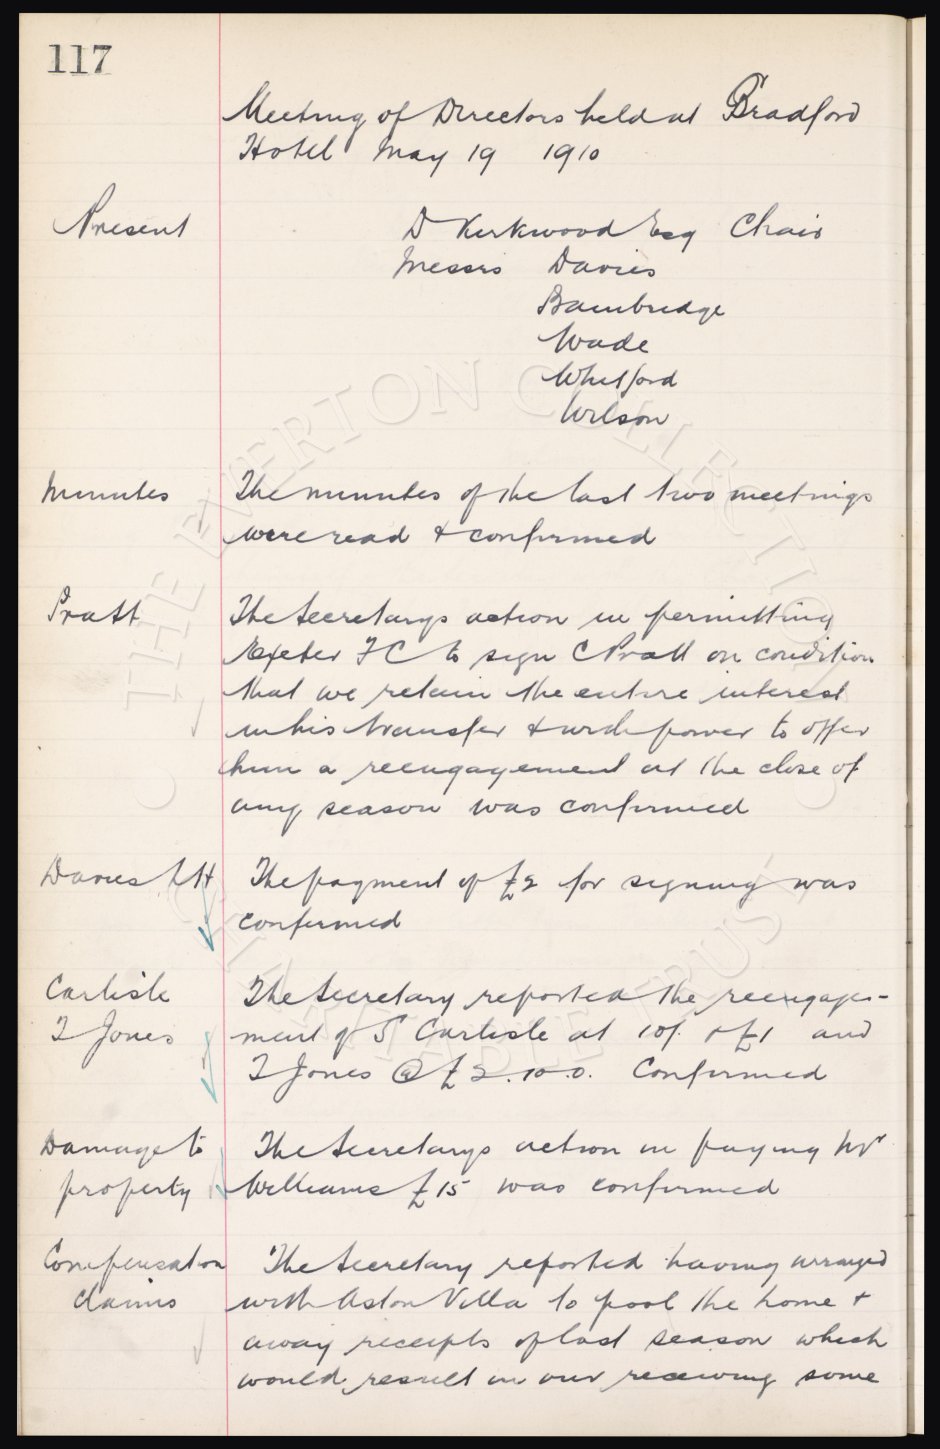 117
Meeting of Directors held at Bradford
Hotel May 19 1910
Present D Kirkwood Esq Chair
Messrs Davies
Bainbridge
Wade
Whitford
Wilson
Minutes The minutes of the last two meetings
were read & confirmed
Pratt The Secretarys action in permitting
Exeter F C to sign C Pratt on condition
that we retain the entire interest
in his transfer & with power to offer
him a reengagement at the close of
any season was confirmed
Davies The payment of £2 for signing was
confirmed
Carlisle The Secretary reported the reengage-
T Jones ment of S Carlisle at 10/. & £1 and
T Jones @ £2.10.0. Confirmed
Damage to The Secretarys action in paying Mr
property Williams £15 was confirmed
Compensation The Secretary reported having arranged
Claims with Aston Villa to pool the home &
away receipts of last season which
would result in our receiving some
THE EVERTON COLLECTION
CHARITABLE TRUST